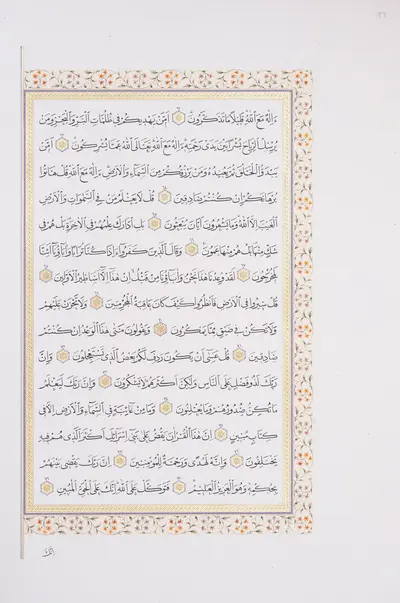 ءَإِلَٰهٌ مَعَ ٱللَّهِ قَلِيلًا مَا تَذَكَّرُونَ ۝ أَمَّنْ يَهْدِيكُمْ فِي ظُلُمَاتِ ٱلْبَرِّ وَٱلْبَحْرِ وَمَنْ
يُرْسِلُ ٱلرِّيَاحَ بُشْرًا بَيْنَ يَدَيْ رَحْمَتِهِ ءَإِلَٰهٌ مَعَ ٱللَّهِ تَعَالَى ٱللَّهُ عَمَّا يُشْرِكُونَ ۝ أَمَّنْ
يَبْدَؤُا ٱلْخَلْقَ ثُمَّ يُعِيدُهُ وَمَنْ يَرْزُقُكُمْ مِنَ ٱلسَّمَاءِ وَٱلْأَرْضِ ءَإِلَٰهٌ مَعَ ٱللَّهِ قُلْ هَاتُوا
بُرْهَانَكُمْ إِنْ كُنْتُمْ صَادِقِينَ ۝ قُلْ لَا يَعْلَمُ مَنْ فِي ٱلسَّمٰوَاتِ وَٱلْأَرْضِ
ٱلْغَيْبَ إِلَّا ٱللَّهُ وَمَا يَشْعُرُونَ أَيَّانَ يُبْعَثُونَ ۝ بَلِ ٱدَّارَكَ عِلْمُهُمْ فِي ٱلْآخِرَةِ بَلْ هُمْ فِي
شَكٍّ مِنْهَا بَلْ هُمْ مِنْهَا عَمُونَ ۝ وَقَالَ ٱلَّذِينَ كَفَرُوا ءَإِذَا كُنَّا تُرَابًا وَءَابَاؤُنَا أَئِنَّا
لَمُخْرَجُونَ ۝ لَقَدْ وُعِدْنَا هَٰذَا نَحْنُ وَءَابَاؤُنَا مِنْ قَبْلُ إِنْ هَٰذَا إِلَّا أَسَاطِيرُ ٱلْأَوَّلِينَ ۝
قُلْ سِيرُوا فِي ٱلْأَرْضِ فَٱنْظُرُوا كَيْفَ كَانَ عَاقِبَةُ ٱلْمُجْرِمِينَ ۝ وَلَا تَحْزَنْ عَلَيْهِمْ
وَلَا تَكُنْ فِي ضَيْقٍ مِمَّا يَمْكُرُونَ ۝ وَيَقُولُونَ مَتَىٰ هَٰذَا ٱلْوَعْدُ إِنْ كُنْتُمْ
صَادِقِينَ ۝ قُلْ عَسَىٰ أَنْ يَكُونَ رَدِفَ لَكُمْ بَعْضُ ٱلَّذِي تَسْتَعْجِلُونَ ۝ وَإِنَّ
رَبَّكَ لَذُو فَضْلٍ عَلَى ٱلنَّاسِ وَلَٰكِنَّ أَكْثَرَهُمْ لَا يَشْكُرُونَ ۝ وَإِنَّ رَبَّكَ لَيَعْلَمُ
مَا تُكِنُّ صُدُورُهُمْ وَمَا يُعْلِنُونَ ۝ وَمَا مِنْ غَائِبَةٍ فِي ٱلسَّمَاءِ وَٱلْأَرْضِ إِلَّا فِي
كِتَابٍ مُبِينٍ ۝ إِنَّ هَٰذَا ٱلْقُرْءَانَ يَقُصُّ عَلَىٰ بَنِي إِسْرَائِيلَ أَكْثَرَ ٱلَّذِي هُمْ فِيهِ
يَخْتَلِفُونَ ۝ وَإِنَّهُ لَهُدًى وَرَحْمَةٌ لِلْمُؤْمِنِينَ ۝ إِنَّ رَبَّكَ يَقْضِي بَيْنَهُمْ
بِحُكْمِهِ وَهُوَ ٱلْعَزِيزُ ٱلْعَلِيمُ ۝ فَتَوَكَّلْ عَلَى ٱللَّهِ إِنَّكَ عَلَى ٱلْحَقِّ ٱلْمُبِينِ ۝
إنك